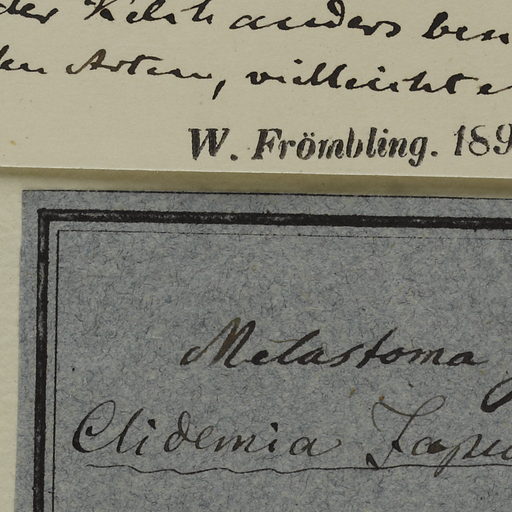 der Kelch anders
den Arten, vielleicht
W. Frömbling. 189
Melastoma
Clidemia